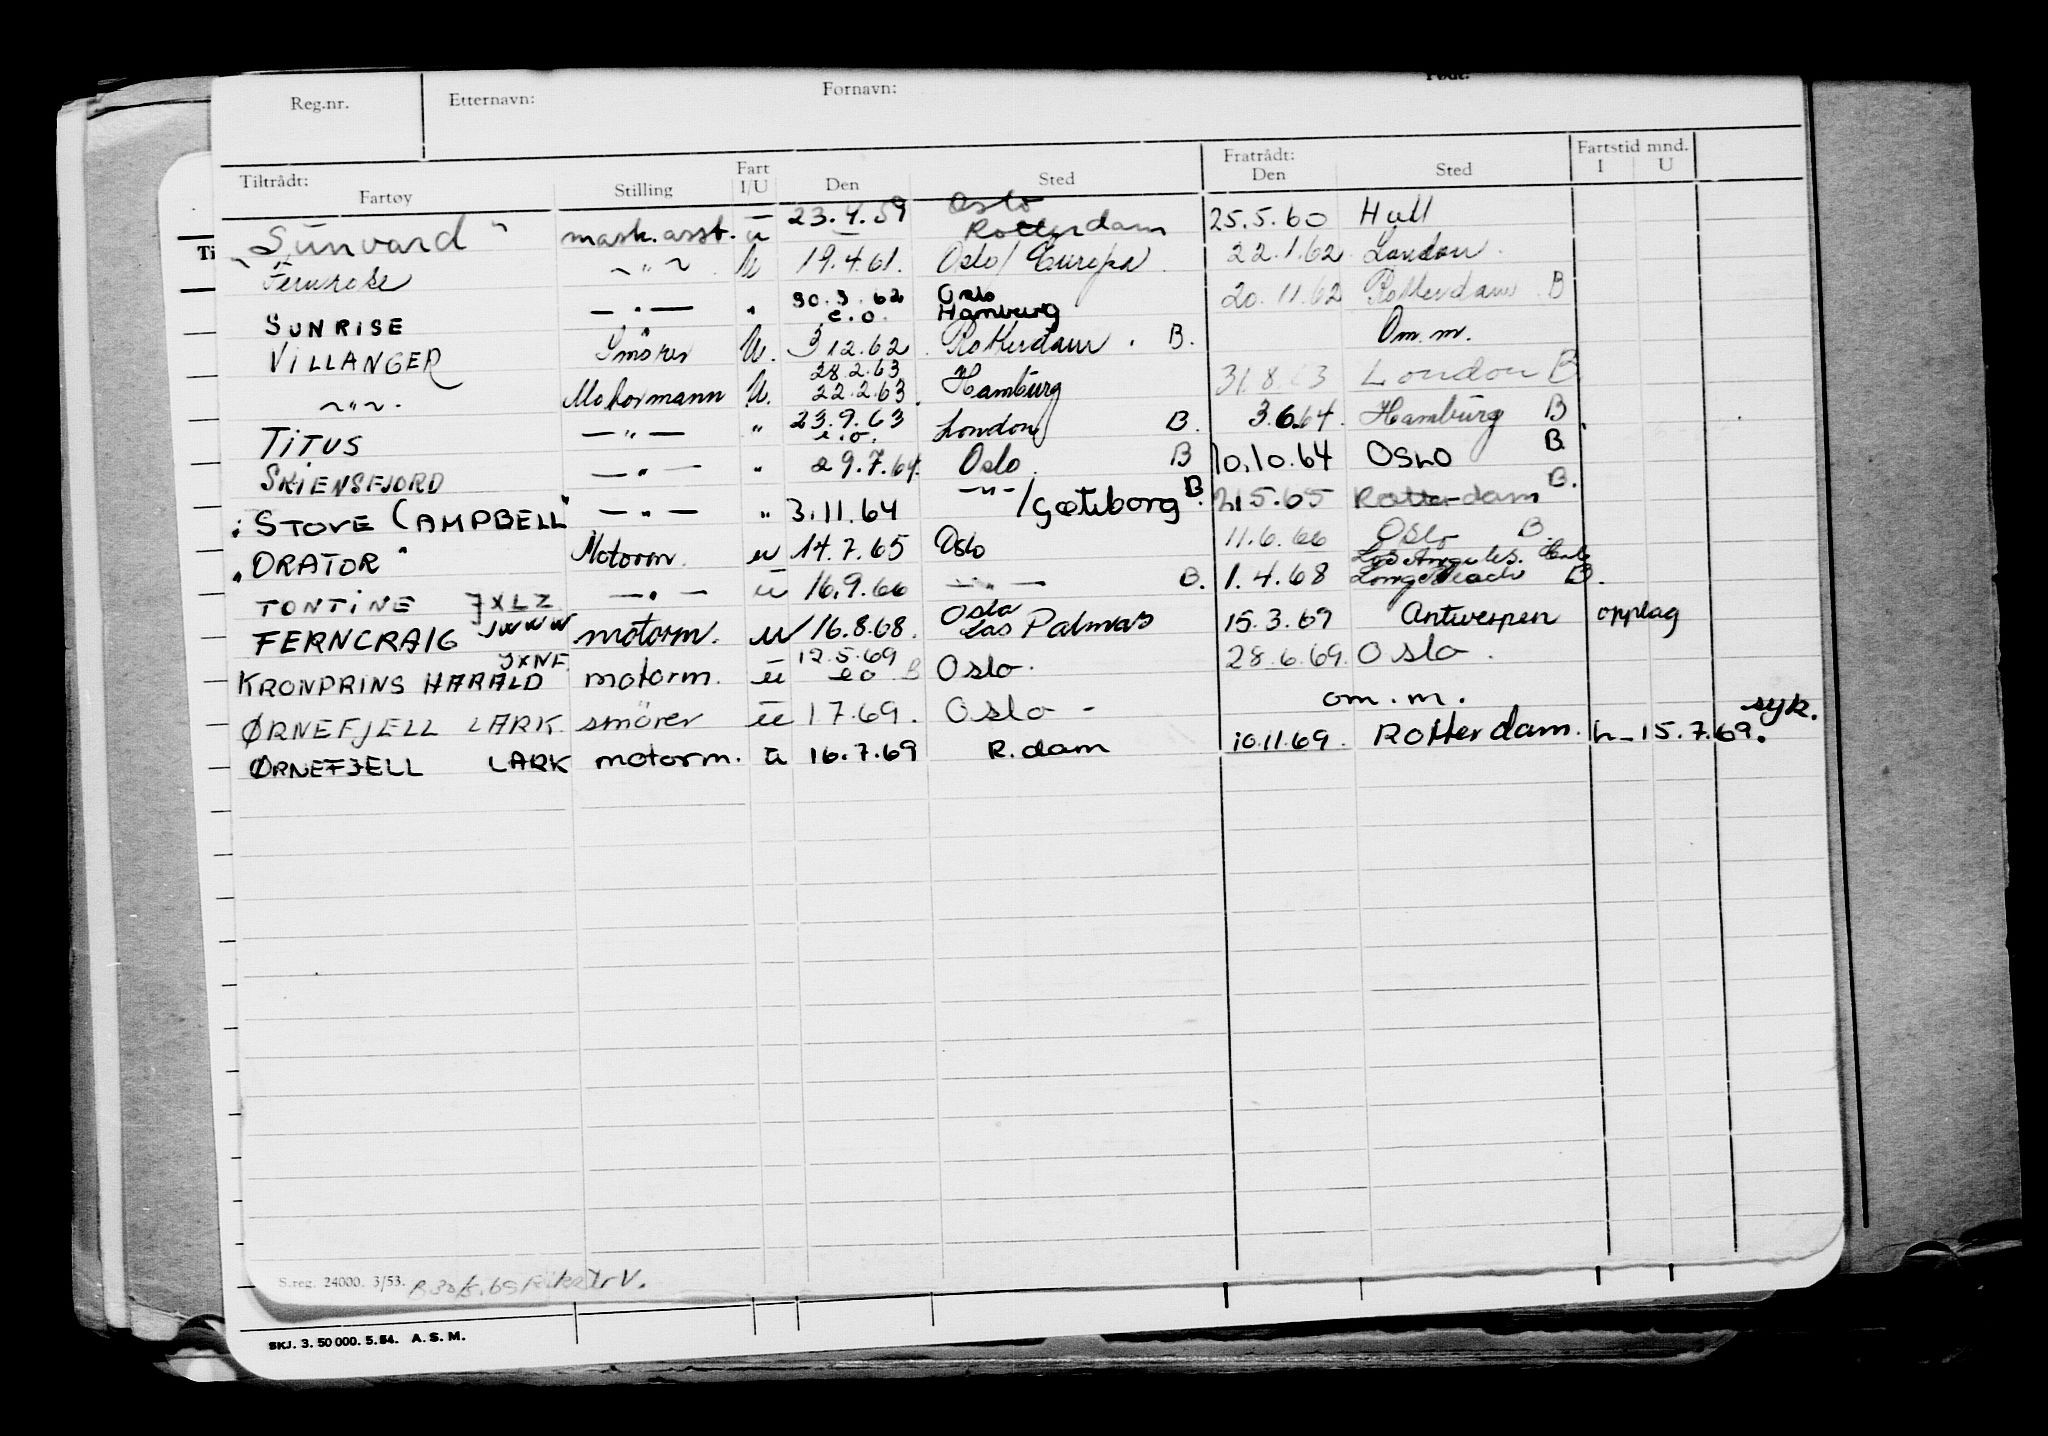 Reg.nr. Etternavn: Fornavn: Født:
Tiltrådt: Fratrådt: Fartstid mnd.
Fartøy Stilling Fart I/U Den Sted Den Sted I U
Oslo
"Sunvard" mask.asst. ü 23.4.59 Rotterdam 25.5.60 Hull
Fernrose ~"~ U 19.4.61. Oslo/Europa. 22.1.62 London.
30.3.62 Oslo
SUNRISE —"— " e.o. Hamburg 20.11.62 Rotterdam B
VILLANGER Smører U. 3 12.62. Rotterdam. B. Om. m.
28.2.63
~"~. Motormann U. 22.2.63. Hamburg 31 8.63 London B
23.9.63
TITUS —"— " e.o. London B. 3.6.64. Hamburg B
SKIENSFJORD —"— " 29.7.64. Oslo. B 10.10.64 OSLO B
"STOVE CAMPBELL" —"— " 3.11.64 —"—/Gøteborg B. 21.5.65 Rotterdam B.
"ORATOR" Motorm. u 14.7.65 Oslo 11.6.66 Oslo B.
Los Angeles.
TONTINE JXLZ —"— ü 16.9.66 —"— B. 1.4.68 Long Beach B.
Oslo
FERNCRAIG JWWW motorm. u 16.8.68. Las Palmas 15.3.69 Antwerpen opplag
JXNF 12.5.69
KRONPRINS HARALD motorm. ü eo B Oslo. 28.6.69. Oslo.
ØRNEFJELL LARK. smörer ü 1 7.69. Oslo - om. m.
syk.
ØRNEFJELL LARK motorm. ü 16.7.69 R.dam 10.11.69. Rotterdam. h-15.7.69.
S.reg. 24000. 3/53.
SKJ. 3. 50 000. 5.54. A. S. M.